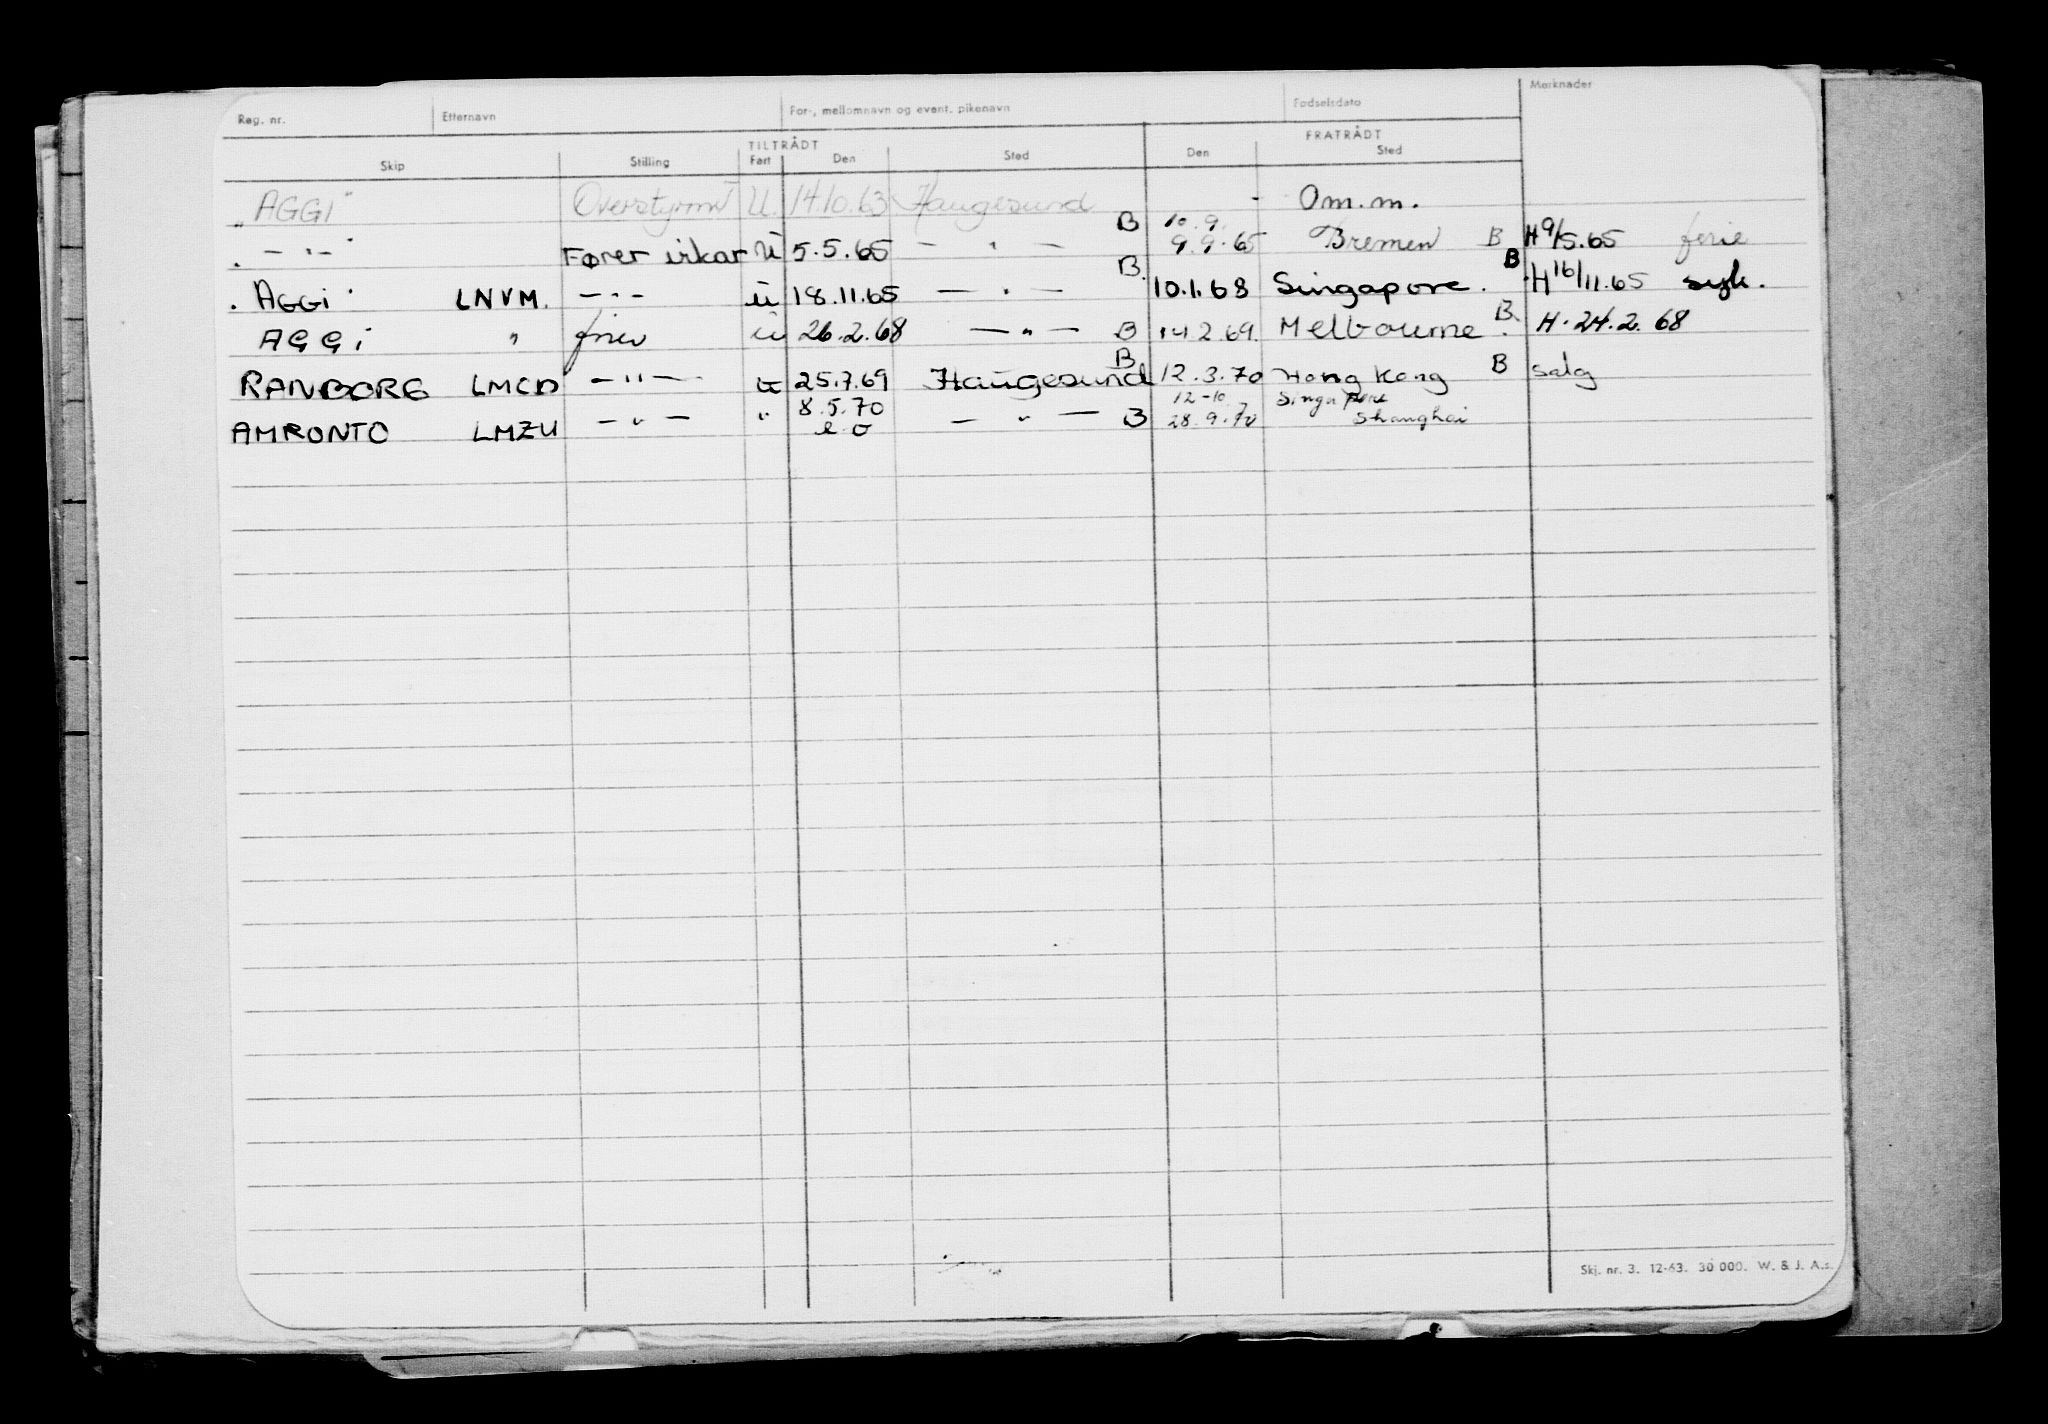 Reg. nr. Etternavn For-, mellomnavn og event. pikenavn Fødselsdato Merknader
TILTRÅDT FRATRÅDT
Skip Stilling Fart Den Sted Den Sted
"AGGI" Overstyrm U. 14.10.63 Haugesund - Om.m.
B 10.9.
- " - Fører virkar U 5.5.65 - " - 9.9.65 Bremen B H 9/5.65 ferie
B. B
"AGGi" LNVM. - " - u 18.11.65 - " - 10.1.68 Singapore. H 16/11.65 syk.
AGGi " fører u 26.2.68 - " - B 14.2.69. Melbourne. B. H. 24.2.68
B
RANBORG LMCD - " - u 25.7.69 Haugesund 12.3.70 Hong Kong B salg
8.5.70 12-10 Singapore
AMRONTO LMZU - " - " e.o - " - B 28.9.70 Shanghai
Skj. nr. 3. 12-63. 30 000. W. & J. A.s.